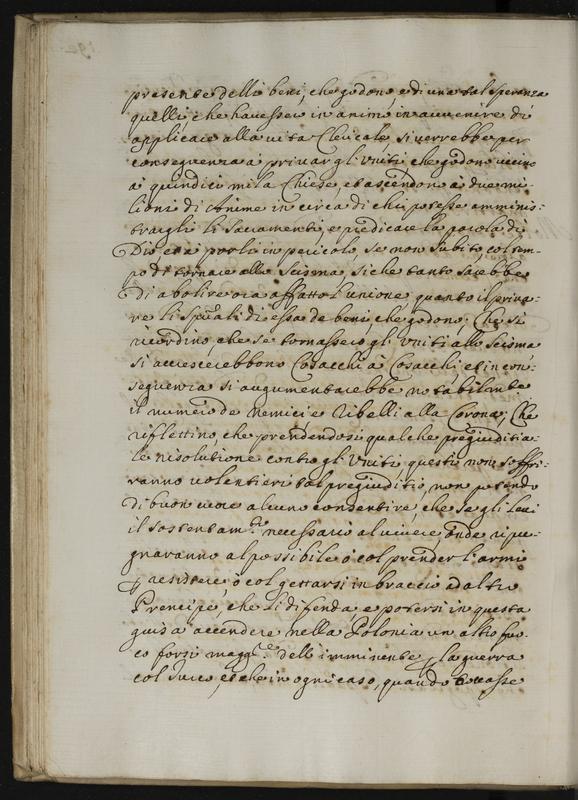 presente delli beni, che godono, e di una tal speranza
quelli che havessero in animo in avvenire di
applicare alla vita Clericale, si verrebbe per
conseguenza a privar gl'Uniti, che godono vicino
à quindici mila Chiese, et ascendono à due mi-
lioni di Anime in circa di chi potesse amminis-
trargli li Sacramenti, e predicare la parola di
Dio et a porli in pericolo, se non subito, col tem-
po di tornare allo Scisma, si che tanto sarebbe
di abolire ora affatto l'unione, quanto il priva-
re li spŭali di essa de beni, che godono; Che si
ricordino, che se tornassero gl'Uniti allo Scisma
si accrescerebbono Cosacchi à Cosacchi, et in con-
seguenza si augumentarebbe notabilmente
il numero de nemici e ribelli alla Corona; Che
riflettino, che prendendosi qualche pregiuditia-
le risolutione contro gl'Uniti, questi non soffri-
ranno volentieri tal pregiuditio, non potendo
di buon cuore alcuno consentire, che se gli levi
il sostentam.to necessario al vivere, onde ripu-
gnaranno al possibile ò col prender l'armi
p resistere, ò col gettarsi in braccio ad altro
Prencipe, che li difenda e potersi in questa
guisa accendere nella Polonia un altro fuo-
co forsi magg.re dell'imminente p la guerra
col Turco, et che in ogni caso, quando